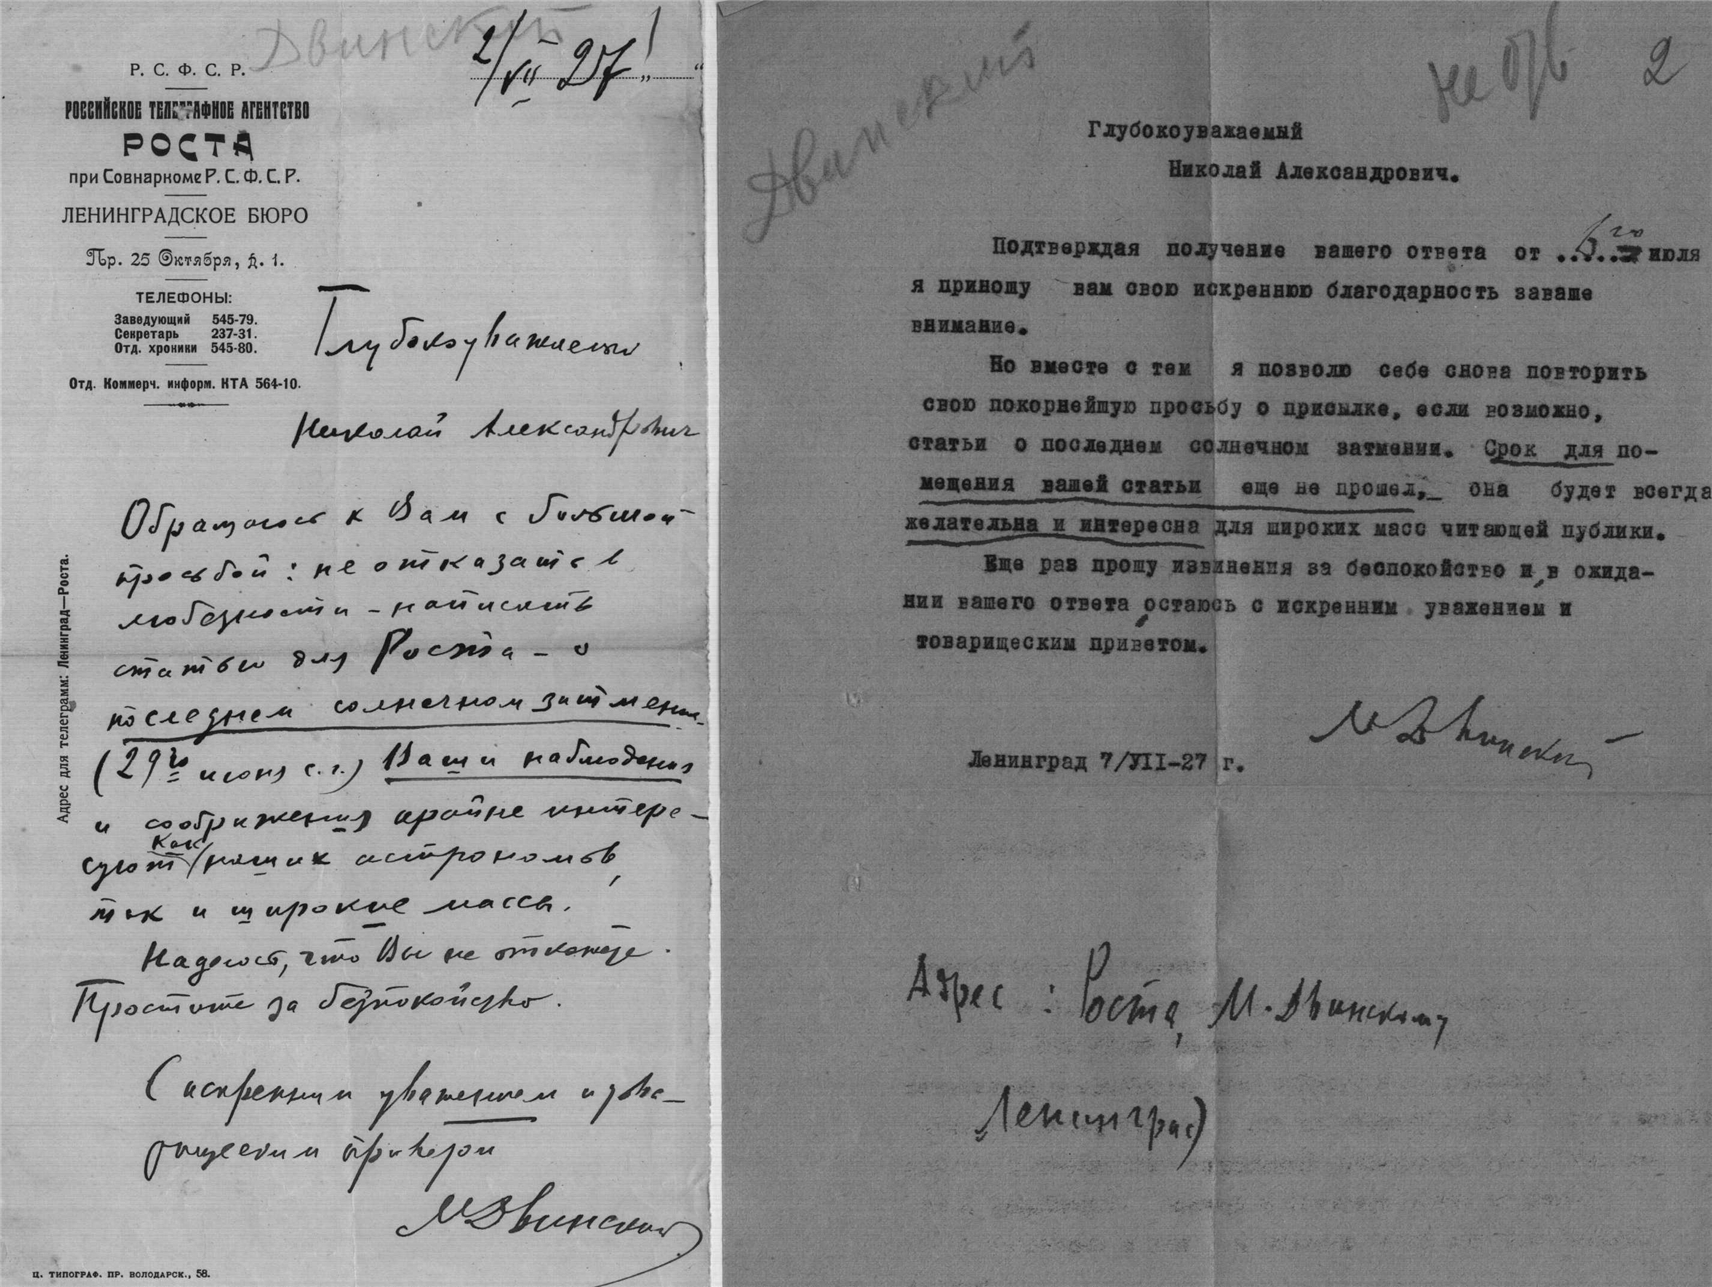 Двинский
2/VII 27!
Р. С. Ф. С. Р.
РОССИЙСКОЕ ТЕЛЕГРАФНОЕ АГЕНТСТВО
РОСТА
при Совнаркоме Р. С. Ф. С. Р.
ЛЕНИНГРАДСКОЕ БЮРО
Пр. 25 Октября, д. 1.
ТЕЛЕФОНЫ:
Заведующий 545-79.
Секретарь 237-31.
Отд. хроники 545-80.
Отд. Коммерч. информ. КТА 564-10.
Адрес для телеграмм: Ленинград—Роста.
Глубокоуважаемый
Николай Александрович
Обращаюсь к Вам с большой
просьбой: не отказать в
любезности – написать
статью для Роста – о
последнем солнечном затмении
(29го июня с.г.) Ваши наблюдения
и соображения крайне интере-
суют как наших астрономов,
так и широкие массы.
Надеюсь, что Вы не откажете.
Простите за безпокойство.
С искренним уважением и това-
рищеским приветом
М Двинский
Ц. ТИПОГРАФ. ПР. ВОЛОДАРСК., 58.
Двинский
не отв
2
Глубокоуважаемый
Николай Александрович.
Подтверждая получение вашего ответа от ..... го июля
я приношу вам свою искреннюю благодарность заваше
внимание.
Но вместе с тем я позволю себе снова повторить
свою покорнейшую просьбу о присылке, если возможно,
статьи о последнем солнечном затмении. Срок для по-
мещения вашей статьи еще не прошел, она будет всегда
желательна и интересна для широких масс читающей публики.
Еще раз прошу извинения за беспокойство и, в ожида-
нии вашего ответа, остаюсь с искренним уважением и
товарищеским приветом.
М Двинский
Ленинград 7/УІІ-27 г.
Адрес: Роста, М. Двинскому
Ленинград